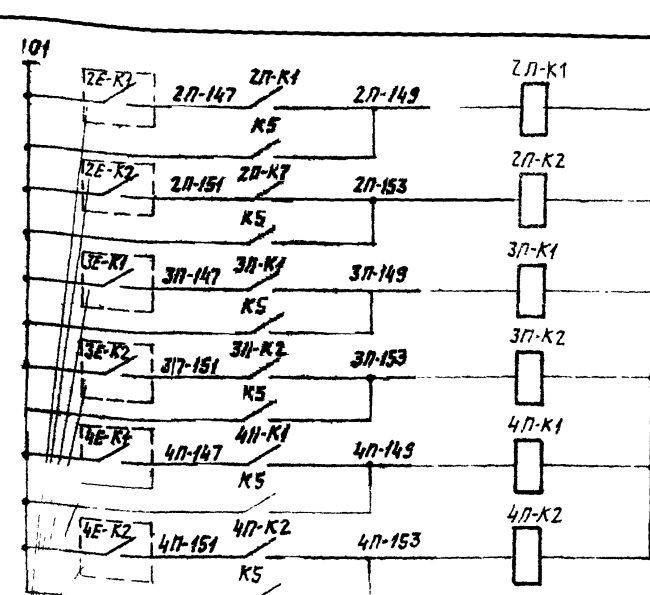 101
2Е-К1 2П-147 2П-К1 2П-149 2П-К1
К5
2Е-К2 2П-151 2П-К? 2П-153 2П-К2
К5
3Е-К1 3П-147 3П-К1 3П-149 3П-К1
К5
3Е-К2 3П-151 3П-К2 3П-153 3П-К2
К5
4Е-К1 4П-147 4П-К1 4П-149 4П-К1
К5
4Е-К2 4П-151 4П-К2 4П-153 4П-К2
К5